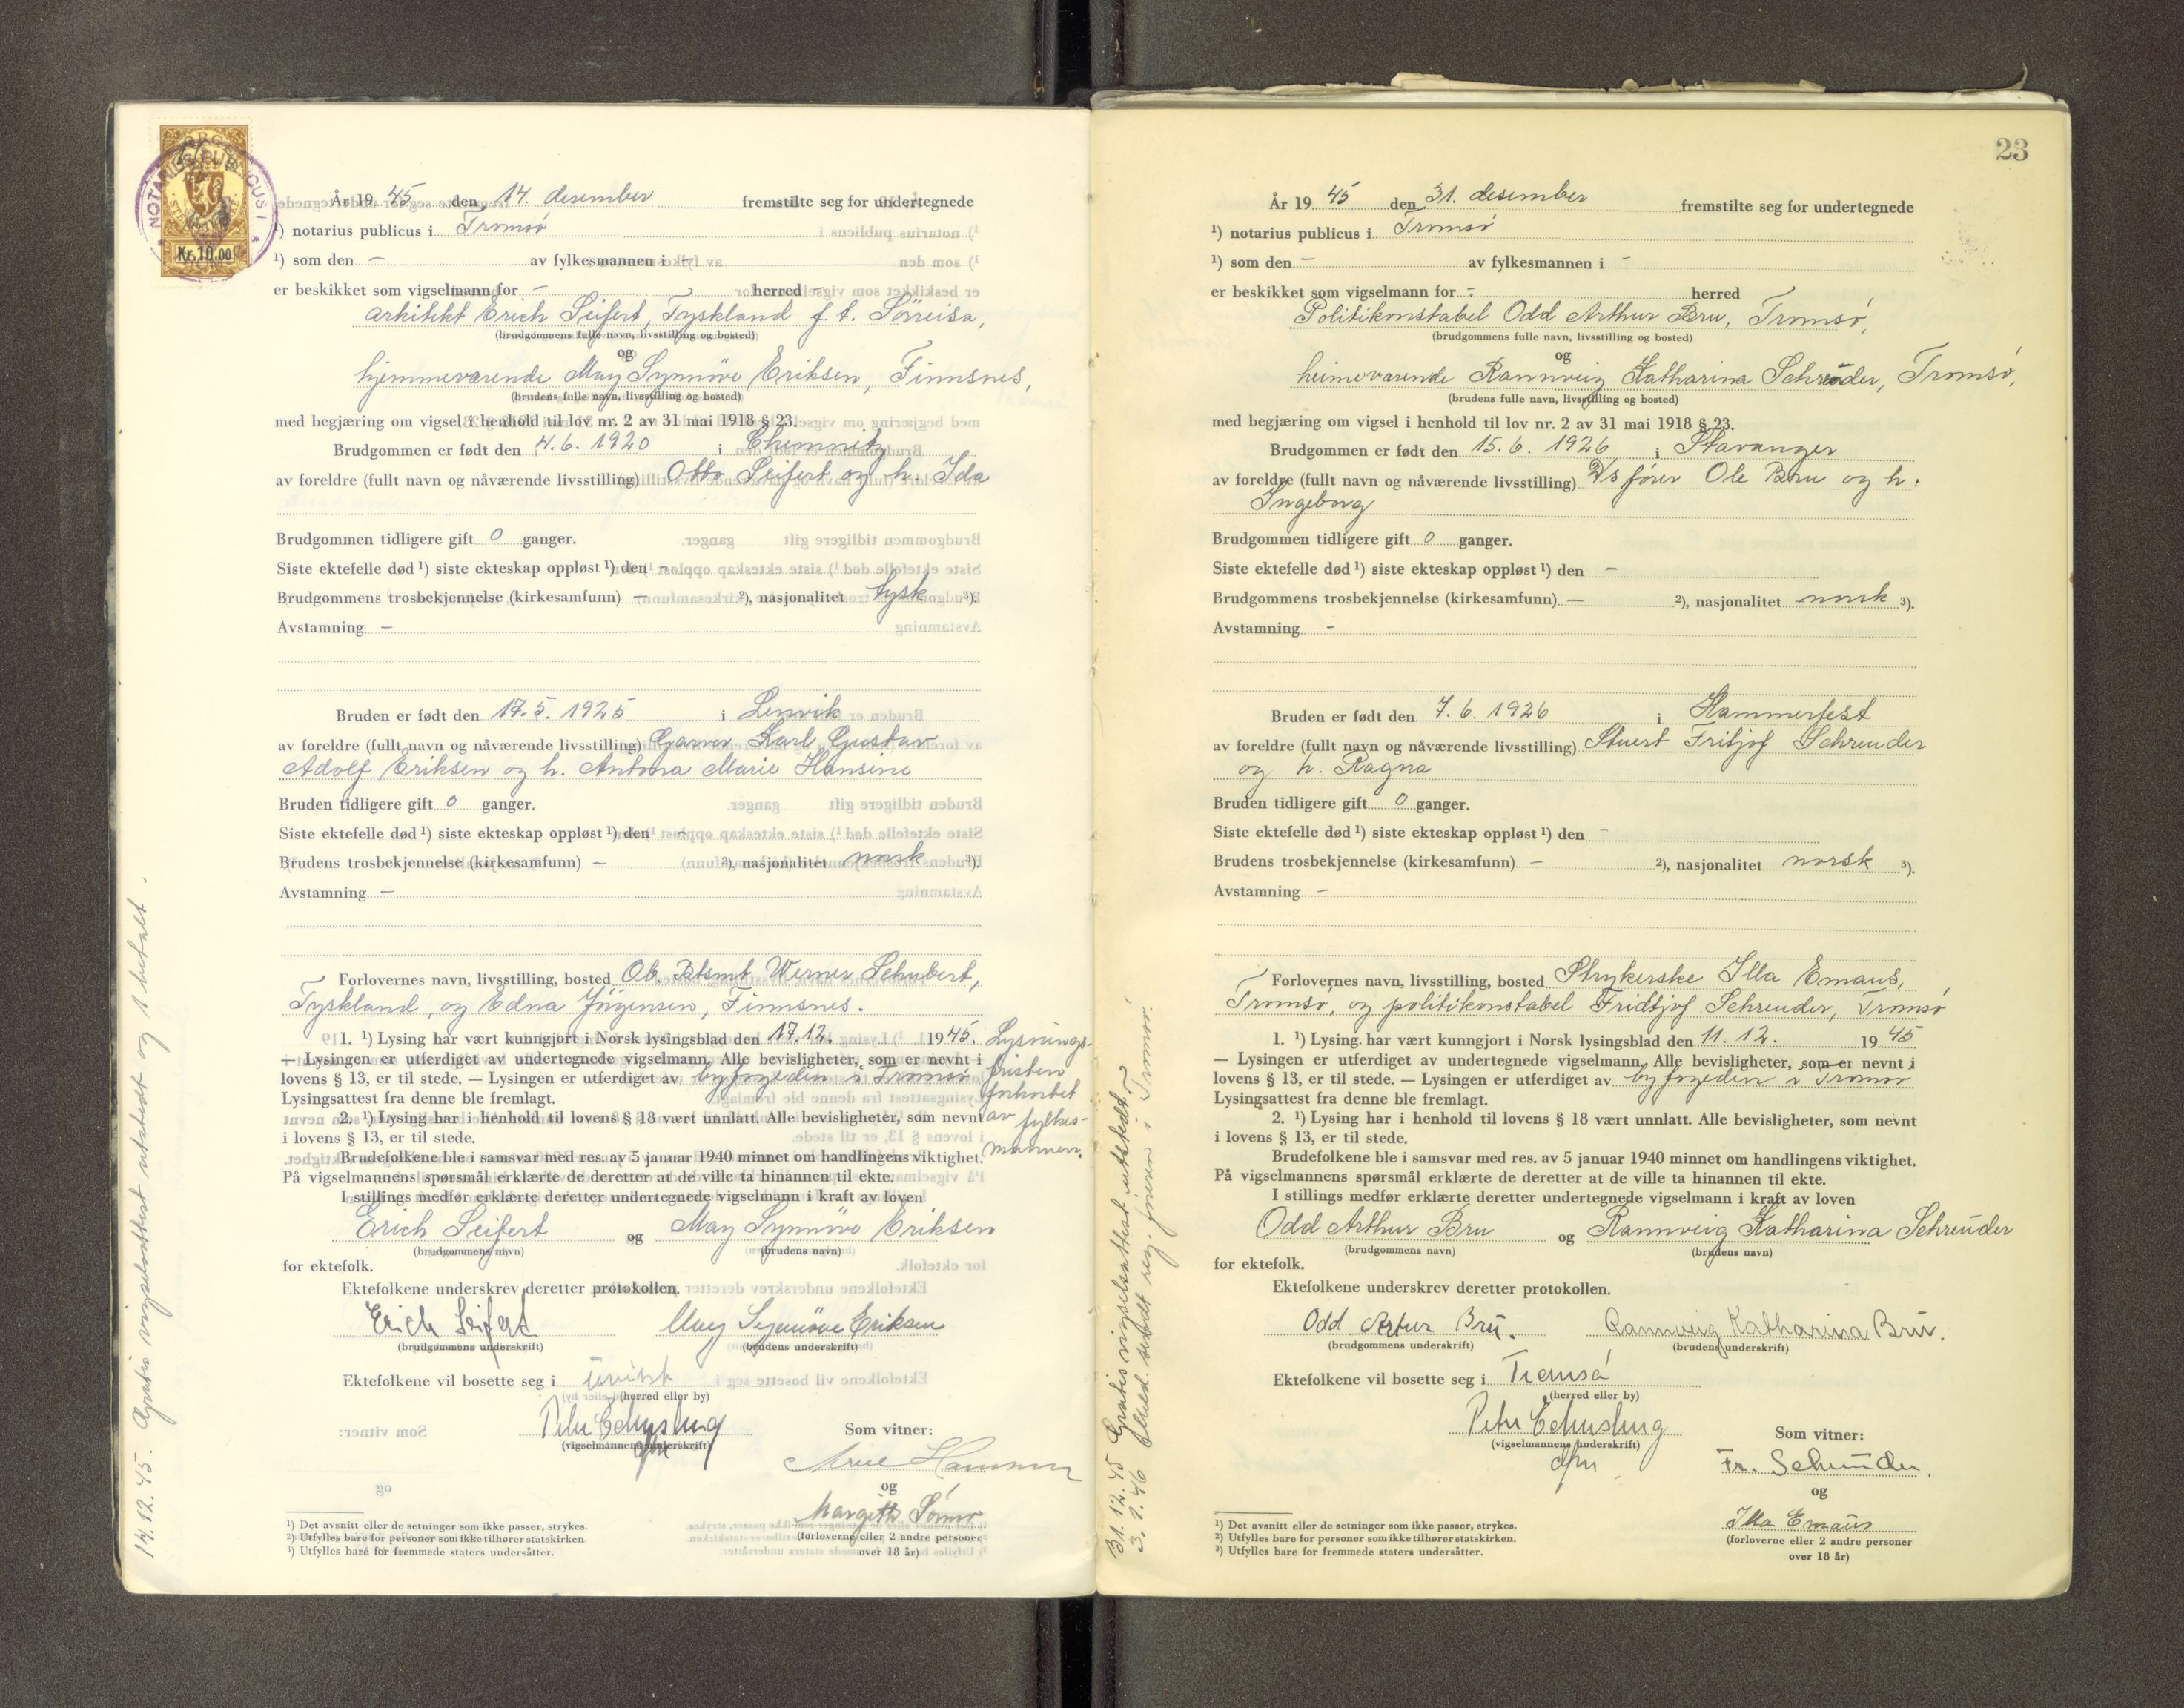 NOTARIUS PUBLICUS I
Kr. 10.00
År 19 45 den 14. desember fremstilte seg for undertegnede
¹) notarius publicus i Tromsö
¹) som den – av fylkesmannen i –
er beskikket som vigselmann for – herred –
arkitekt Erich Seifert, Tyskland f. t. Sörreisa,
(brudgommens fulle navn, livsstilling og bosted)
og
hjemmeværende May Synnöve Eriksen, Finnsnes,
(brudens fulle navn, livsstilling og bosted)
med begjæring om vigsel i henhold til lov nr. 2 av 31 mai 1918 § 23.
Brudgommen er født den 4.6. 1920 i Chemnitz
av foreldre (fullt navn og nåværende livsstilling) Otto Seifert og h. Ida
Brudgommen tidligere gift 0 ganger.
Siste ektefelle død ¹) siste ekteskap oppløst ¹) den –
Brudgommens trosbekjennelse (kirkesamfunn) – ²), nasjonalitet tysk ³).
Avstamning –
Bruden er født den 17.5. 1925 i Lenvik
av foreldre (fullt navn og nåværende livsstilling) Garver Karl Gustav
Adolf Eriksen og h. Antona Marie Hansine
Bruden tidligere gift 0 ganger.
Siste ektefelle død ¹) siste ekteskap oppløst ¹) den –
Brudens trosbekjennelse (kirkesamfunn) – ²), nasjonalitet norsk ³).
Avstamning –
Forlovernes navn, livsstilling, bosted Ob. Btsmt Werner Schubert,
Tyskland, og Edna Jörgensen, Finnsnes.
1. ¹) Lysing har vært kunngjort i Norsk lysingsblad den 17.12. 1945. Lysnings-
— Lysingen er utferdiget av undertegnede vigselmann. Alle bevisligheter, som er nevnt i
lovens § 13, er til stede. — Lysingen er utferdiget av byfogeden i Tromsö fristen
Lysingsattest fra denne ble fremlagt. forkortet
2. ¹) Lysing har i henhold til lovens § 18 vært unnlatt. Alle bevisligheter, som nevnt av fylkes-
i lovens § 13, er til stede.
Brudefolkene ble i samsvar med res. av 5 januar 1940 minnet om handlingens viktighet. mannen.
På vigselmannens spørsmål erklærte de deretter at de ville ta hinannen til ekte.
I stillings medfør erklærte deretter undertegnede vigselmann i kraft av loven
Erich Seifert og May Synnöve Eriksen
(brudgommens navn) (brudens navn)
for ektefolk.
Ektefolkene underskrev deretter protokollen.
Erich Seifert May Synnöve Eriksen
(brudgommens underskrift) (brudens underskrift)
Ektefolkene vil bosette seg i uvisst
(herred eller by)
(vigselmannens underskrift)
Som vitner:
Arne Hansen
og
Margith Sömo
(forloverne eller 2 andre personer
over 18 år)
¹) Det avsnitt eller de setninger som ikke passer, strykes.
²) Utfylles bare for personer som ikke tilhører statskirken.
³) Utfylles bare for fremmede staters undersåtter.
14.12.45. Gratis vigselsattest utstedt og 1 betalt.
23
År 19 45 den 31. desember fremstilte seg for undertegnede
¹) notarius publicus i Tromsö
¹) som den – av fylkesmannen i –
er beskikket som vigselmann for – herred
Politikonstabel Odd Arthur Bru, Tromsö,
(brudgommens fulle navn, livsstilling og bosted)
og
heimeværende Rannveig Katharina Schreuder, Tromsö,
(brudens fulle navn, livsstilling og bosted)
med begjæring om vigsel i henhold til lov nr. 2 av 31 mai 1918 § 23.
Brudgommen er født den 15.6. 1926 i Stavanger
av foreldre (fullt navn og nåværende livsstilling) D/s fører Ole Bru og h.
Ingeborg
Brudgommen tidligere gift 0 ganger.
Siste ektefelle død ¹) siste ekteskap oppløst ¹) den –
Brudgommens trosbekjennelse (kirkesamfunn) – ²), nasjonalitet norsk ³).
Avstamning –
Bruden er født den 7.6. 1926 i Hammerfest
av foreldre (fullt navn og nåværende livsstilling) Stuert Fritjof Schreuder
og h. Ragna
Bruden tidligere gift 0 ganger.
Siste ektefelle død ¹) siste ekteskap oppløst ¹) den –
Brudens trosbekjennelse (kirkesamfunn) – ²), nasjonalitet norsk ³).
Avstamning –
Forlovernes navn, livsstilling, bosted Strykerske Illa Emaus,
Tromsö, og politikonstabel Fridtjof Schreuder, Tromsö
1. ¹) Lysing har vært kunngjort i Norsk lysingsblad den 11.12. 19 45
— Lysingen er utferdiget av undertegnede vigselmann. Alle bevisligheter, som er nevnt i
lovens § 13, er til stede. — Lysingen er utferdiget av byfogeden i Tromsö
Lysingsattest fra denne ble fremlagt.
2. ¹) Lysing har i henhold til lovens § 18 vært unnlatt. Alle bevisligheter, som nevnt
i lovens § 13, er til stede.
Brudefolkene ble i samsvar med res. av 5 januar 1940 minnet om handlingens viktighet.
På vigselmannens spørsmål erklærte de deretter at de ville ta hinannen til ekte.
I stillings medfør erklærte deretter undertegnede vigselmann i kraft av loven
Odd Arthur Bru og Rannveig Katharina Schreuder
(brudgommens navn) (brudens navn)
for ektefolk.
Ektefolkene underskrev deretter protokollen.
Odd Artur Bru. Rannveig Katharina Bru.
(brudgommens underskrift) (brudens underskrift)
Ektefolkene vil bosette seg i Tromsö
(herred eller by)
(vigselmannens underskrift)
Som vitner:
Fr. Schreuder.
og
Illa Emaus
(forloverne eller 2 andre personer
over 18 år)
¹) Det avsnitt eller de setninger som ikke passer, strykes.
²) Utfylles bare for personer som ikke tilhører statskirken.
³) Utfylles bare for fremmede staters undersåtter.
31.12.45 Gratis vigselsattest utstedt
3.1.46 Meld. sendt reg. föreren i Tromsö.